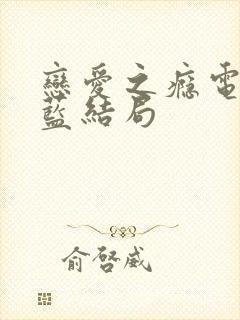 戀愛之癮電
藍結局
俞啓威